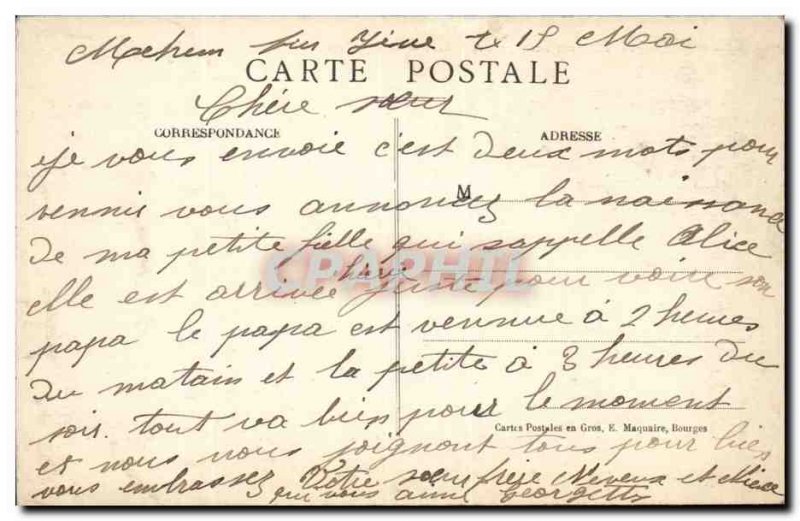 Mehun sur Yèvre le 15 Mai
CARTE POSTALE
Chère sœur
CORRESPONDANCE ADRESSE
je vous envoie c'est deux mots pour
M
vennir vous annoncez la naissance
de ma petite fielle qui sappelle Alice
CPAPHIL
elle est arrivée juste pour voire son
papa le papa est vennue à 2 heures
du matain et la petite à 3 heures du
soir. tout va bien pour le moment
Cartes Postales en Gros, E. Maquaire, Bourges
et nous nous joignont tous pour bien
vous embrassez Votre sœur frère Neveux et Niece
qui vous aime Georgette